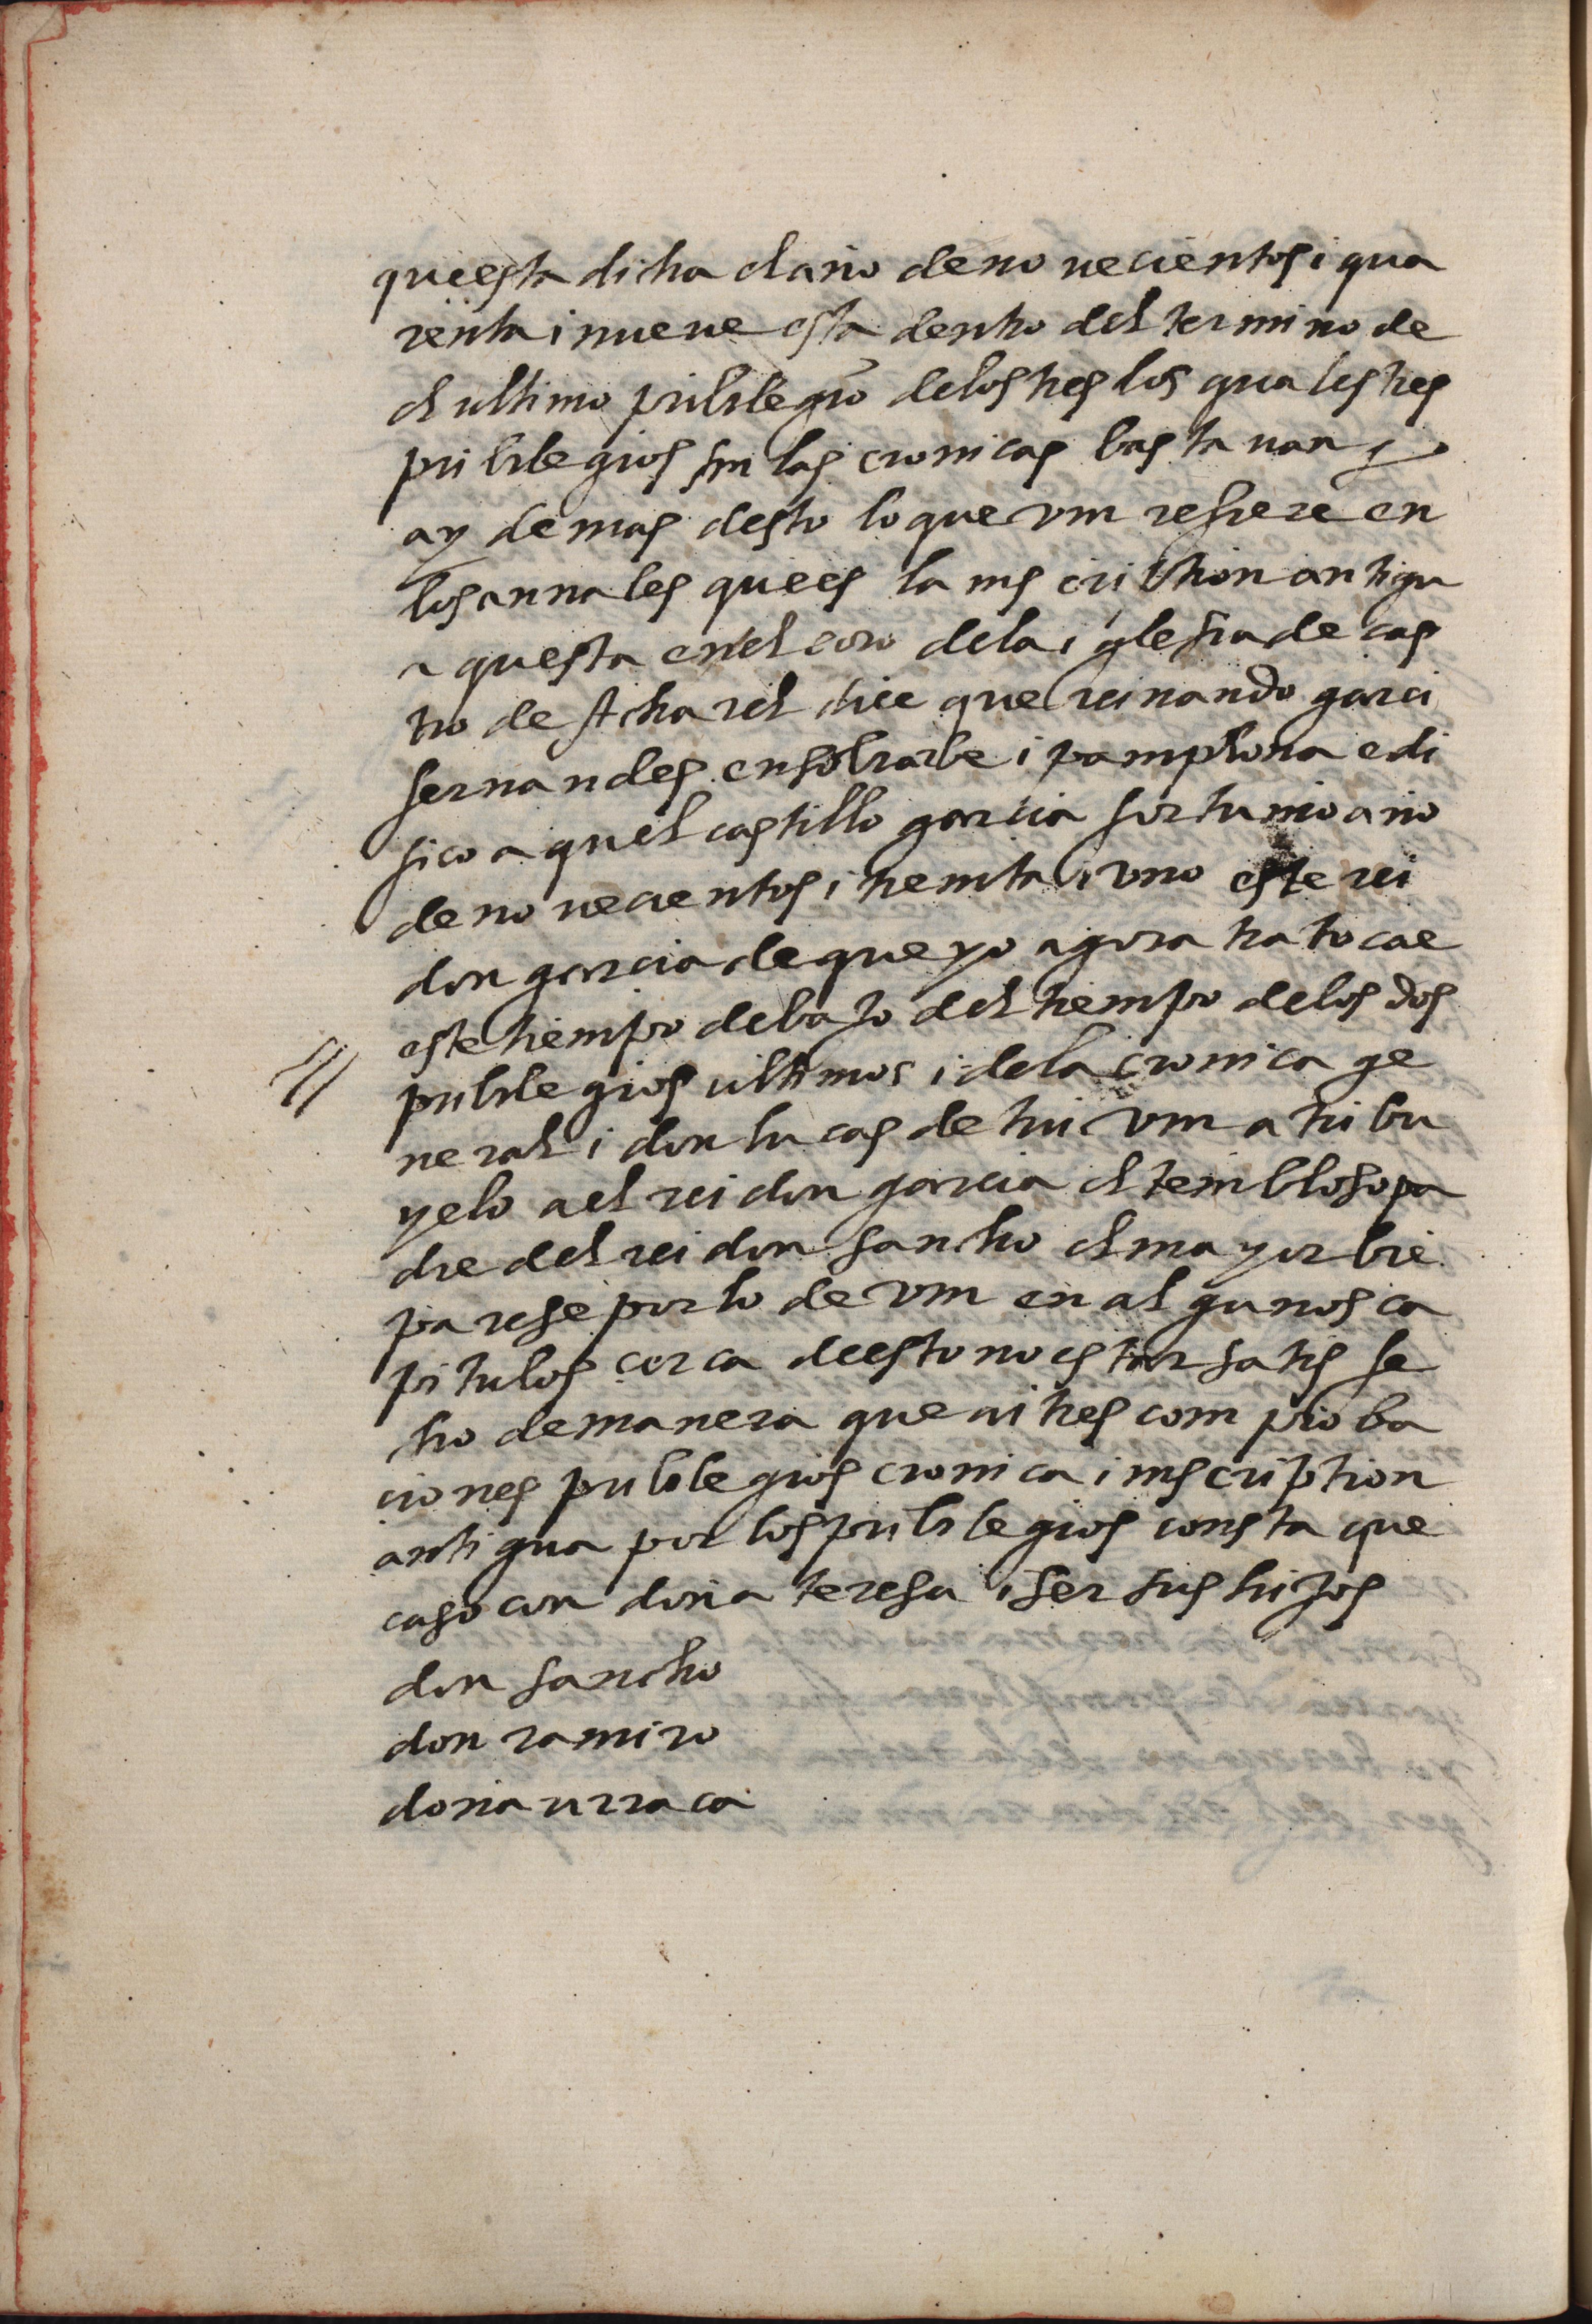 questa dicha el año de novecientos i qua
renta i nueve esta dentro del termino de
el ultimo pribilegio de los tres los quales tres
pribilegios sin las cronicas bastavan y
ay demas desto lo que vm refiere en
los annales que es la inscribtion antigu
a questa en el coro de la iglesia de cas
tro de Acharel dice que reinando garci
fernandes en sobrarbe i pamplona edi
fico aquel castillo garcia fortunio año
de novecientos i treinta i uno este rei
don garcia de que yo agora trato cae
este tiempo debajo del tiempo de los dos
pribilegios ultimos i de la cronica ge
neral i don lucas de tui vm atribu
yelo a el rei don garcia el tembloso pa
dre del rei don sancho el mayor bie
parese por lo de vm en algunos ca
pitulos cerca de esto no estar satisfe
cho de manera que ai tres comproba
ciones pribilegios cronica i inscription
antigua por los pribilegios consta que
caso con doña teresa i ser sus hijos
don sancho
don ramiro
doña urraca